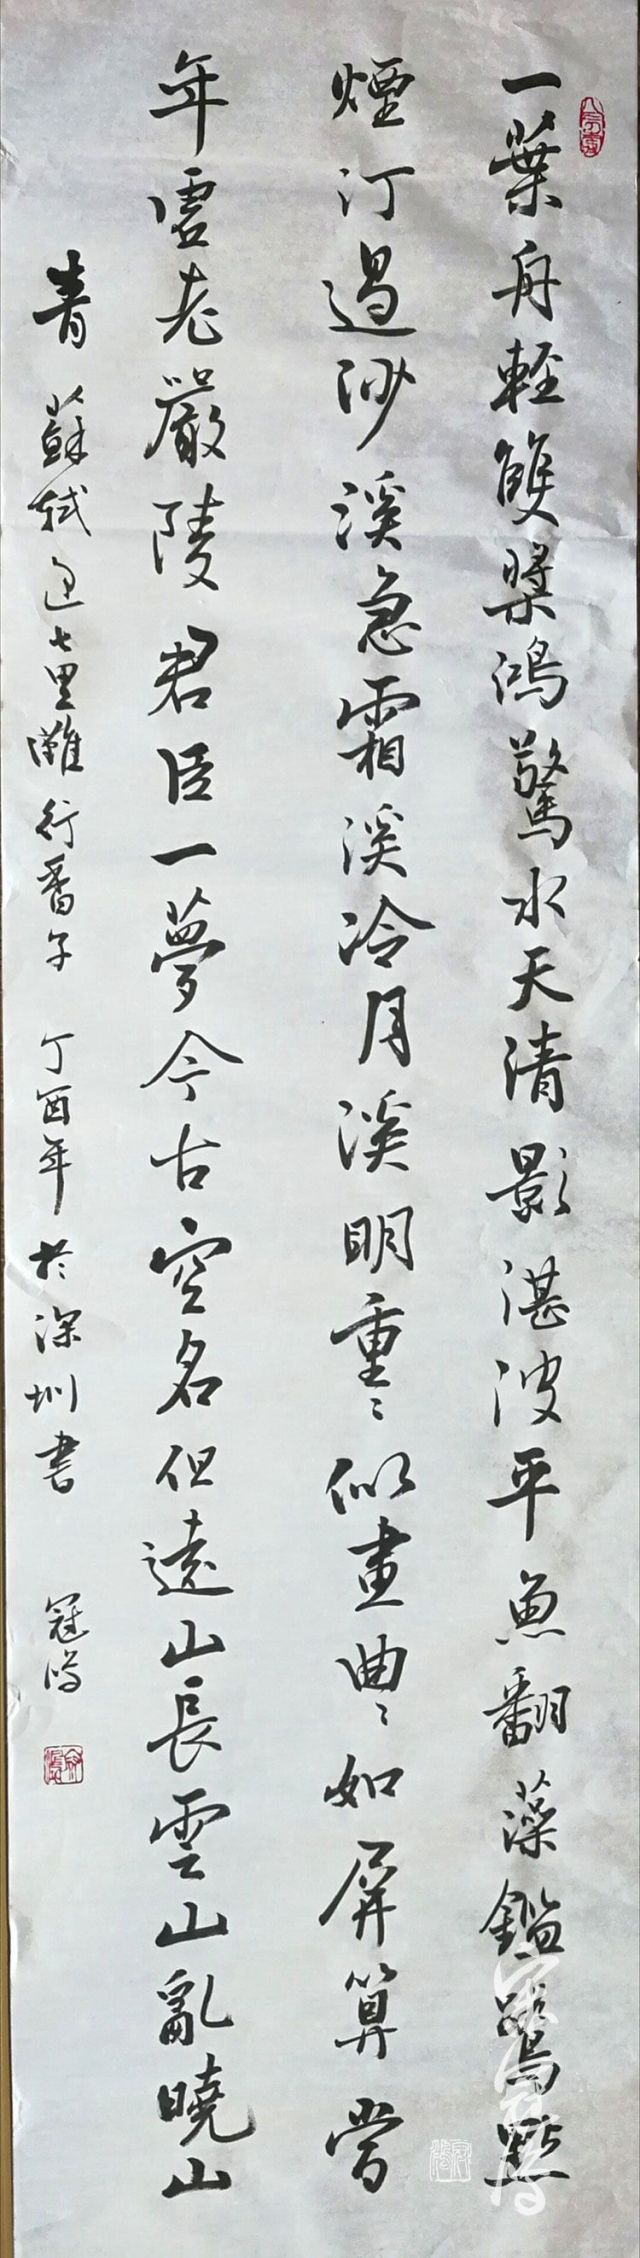 一葉舟輕雙槳鴻驚水天清影湛波平魚翻藻鑑鷺點
煙汀過沙溪急霜溪冷月溪明重〻似畫曲〻如屏算當
年虛老嚴陵君臣一夢今古空名但遠山長雲山亂曉山
青 蘇軾過七里灘行香子 丁酉年於深圳書 冠